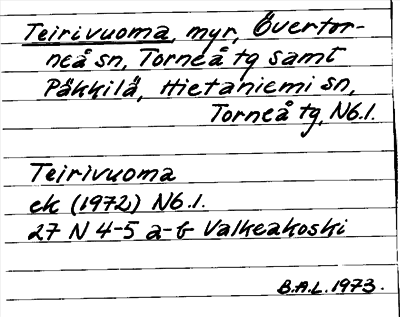 Teirivuoma, myr, Övertor-
neå sn, Torneå tg samt
Päkkilä, Hietaniemi sn,
Torneå tg, Nb.l.
Teirivuoma
ek (1972) Nb.l.
27 N 4-5 a-b Valkeakoski
B.A.L. 1973.